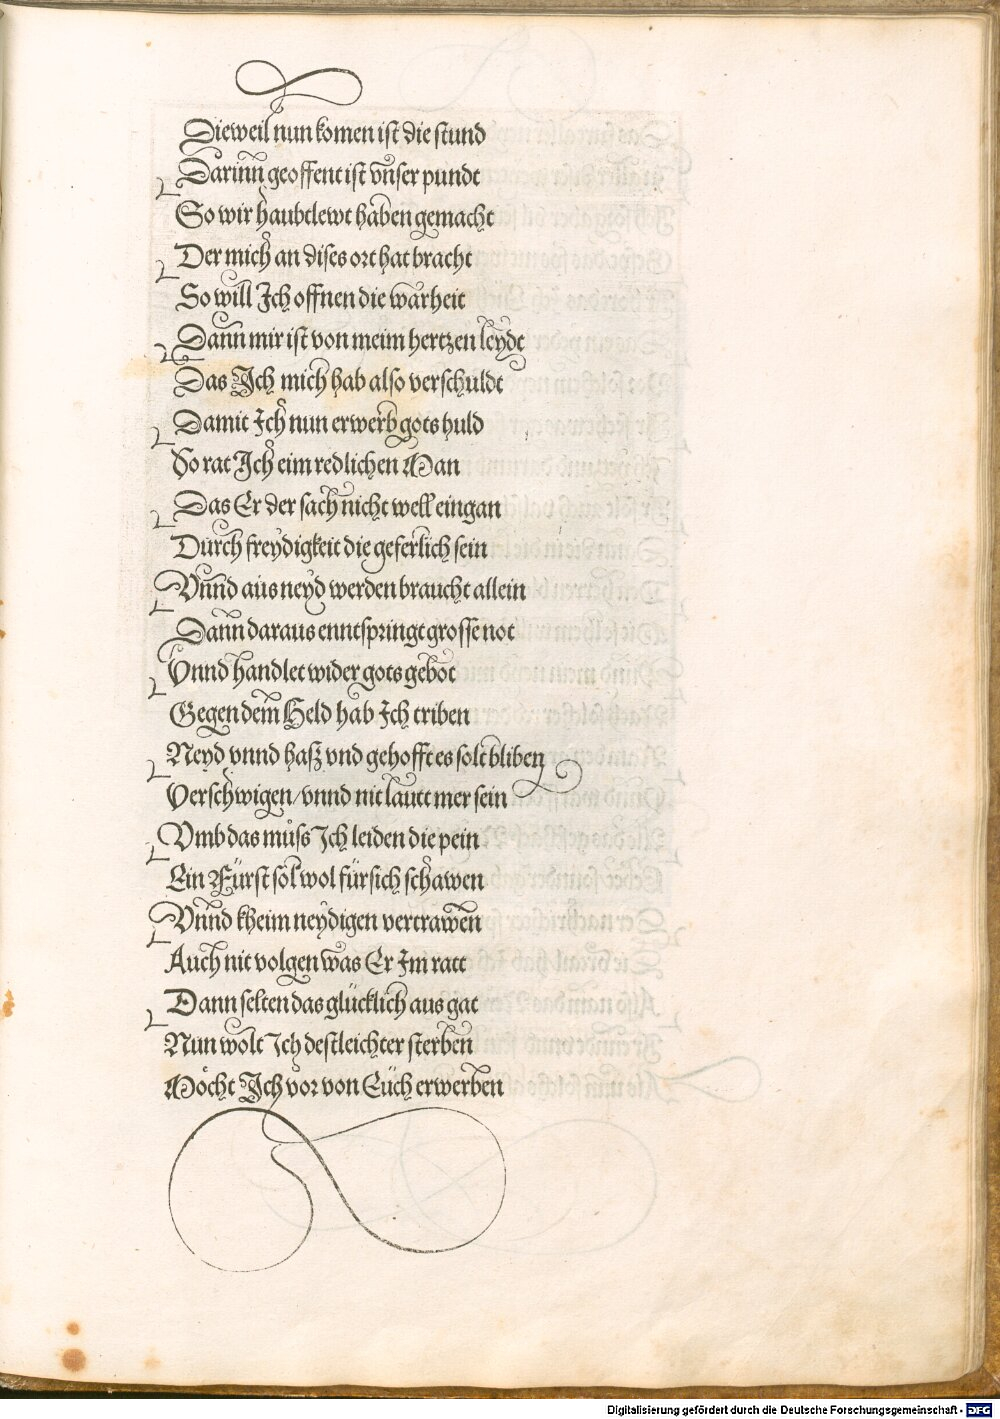 Dieweil nun komen ist die stund
Darinn geoffent ist vnnser pundt
So wir haubtlewt haben gemacht
Der mich an dises ort hat bracht
So will Ich offnen die warheit
Dann mir ist von meim hertzen leydt
Das Ich mich hab also verschuldt
Damit Ich nun erwerb gots huld
So rat Ich eim redlichen Man
Das Er der sach nicht well eingan
Durch freydigkeit die geferlich sein
Vnnd aus neyd werden braucht allein
Dann daraus enntspringt grosse not
Vnnd handlet wider gots gebot
Gegen dem Held hab Ich triben
Neyd vnnd hasz vnd gehofft es solt bliben
Verschwigen/ vnnd nit lautt mer sein
Vmb das můss Ich leiden die pein
Ein Fürst sol wol für sich schawen
Vnnd kheim neydigen vertrawen
Auch nit volgen was Er Im ratt
Dann selten das glücklich aus gat
Nun wolt Ich destleichter sterben
Möcht Ich vor von Eüch erwerben
Digitalisierung gefördert durch die Deutsche Forschungsgemeinschaft - DFG